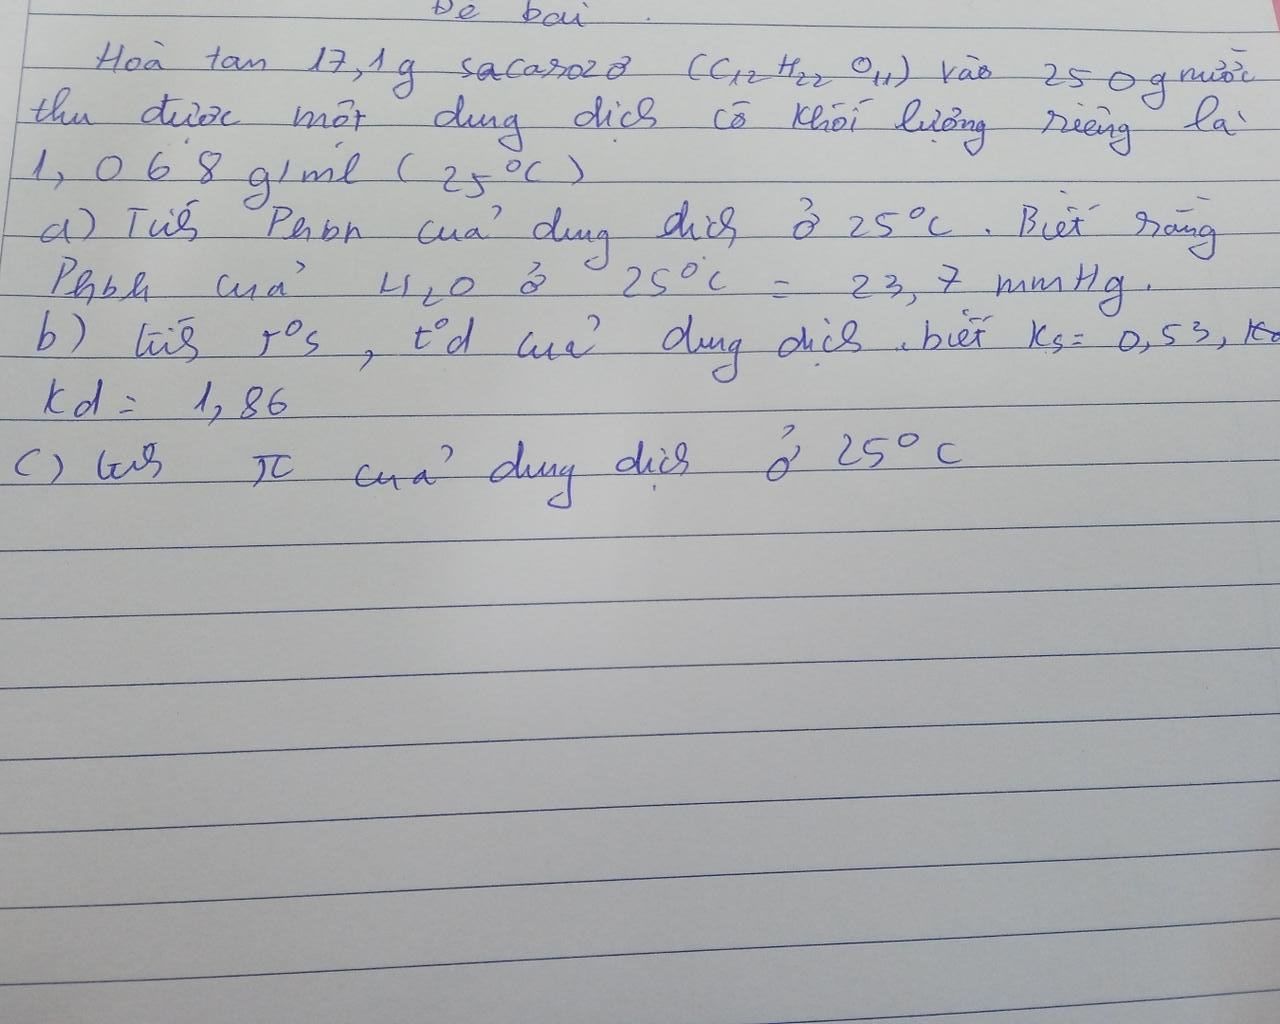 Đề bài
Hoà tan 17,1g sacarozơ (C12 H22 O11) vào 250g nước
thu được một dung dịch có khối lượng riêng là
1,068 g/ml (25°C)
a) Tính Phbh của dung dịch ở 25°C. Biết rằng
Phbh của H2O ở 25°C = 23,7 mmHg.
b) tính t°s, t°đ của dung dịch. biết Ks= 0,53,
Kđ = 1,86
c) tính π của dung dịch ở 25°C